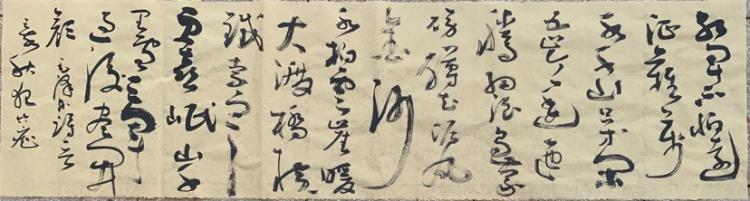 红军不怕远
征难万
水千山只等闲
五岭逶迤
腾细浪乌蒙
磅礴走泥丸
金沙
水拍云崖暖
大渡桥横
铁索寒
更喜岷山千
里雪三军
过后尽开
颜 毛泽东诗